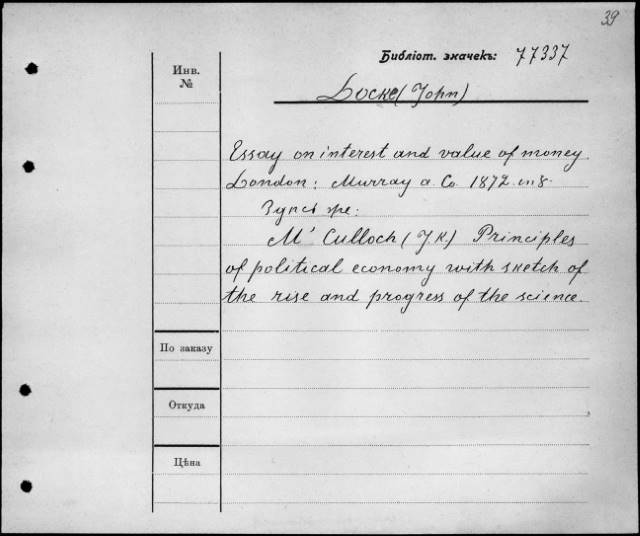 39
Библіот. значекъ: 77337
Инв.
№
Locke (John)
Essay on interest and value of money.
London: Murray a. Co. 1872. in 8.
же:
M' Culloch (J.R.) Principles
of political economy with sketch of
the rise and progress of the science.
По заказу
Откуда
Цѣна